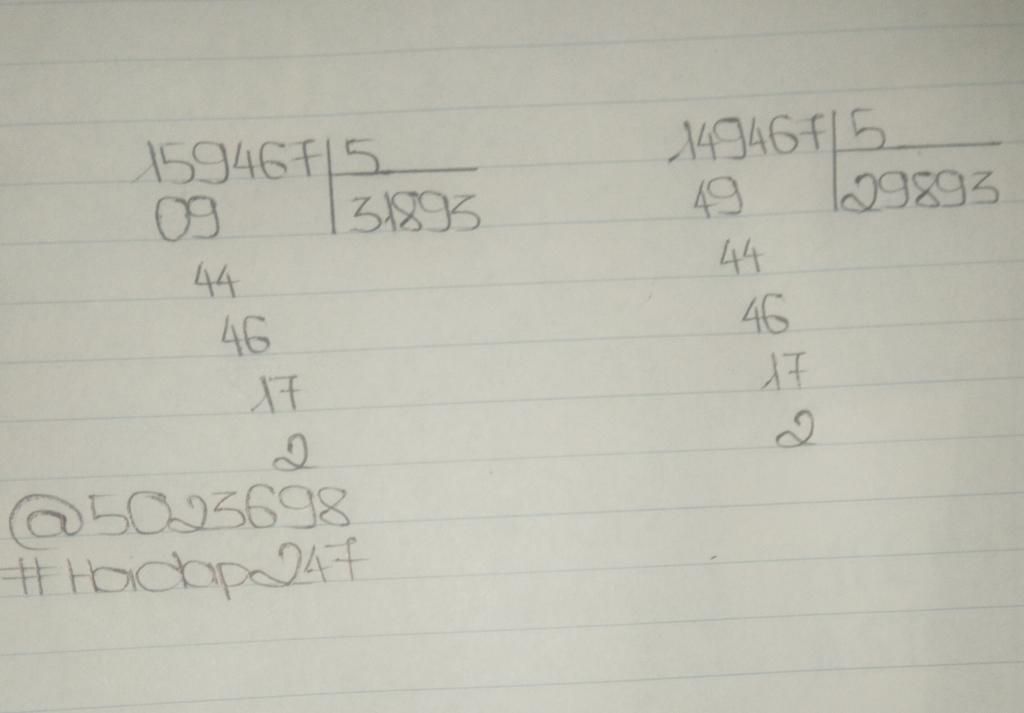 159467 5
09 31893
44
46
17
2
149467 5
49 29893
44
46
17
2
@5023698
#Hoidap247